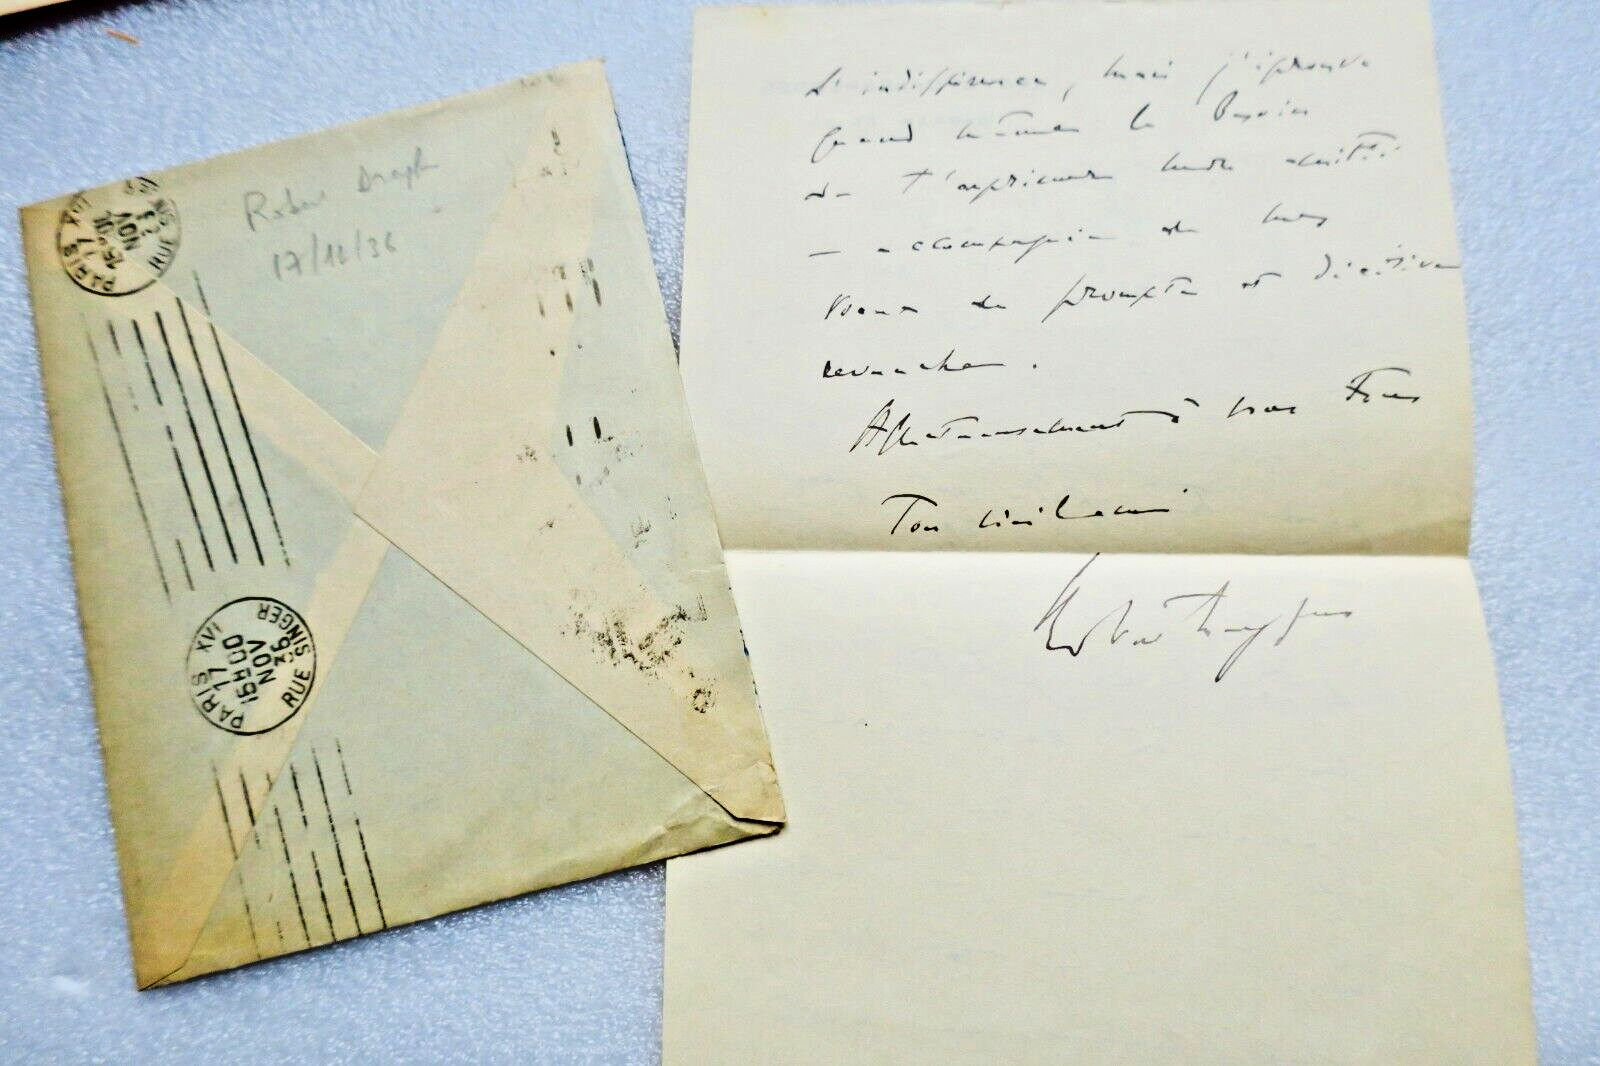 PARIS XVI
17
15H00
NOV
36
RUE SINGER
Robert
17/11/36
PARIS XVI
17
15H00
NOV
36
RUE SINGER
l'indifférence, mais j'éprouve
quand même le besoin
de t'exprimer notre amitié
accompagnée de mes
vœux de prompte et décisive
revanche.
Affectueusement à vous tous
Ton vieil ami